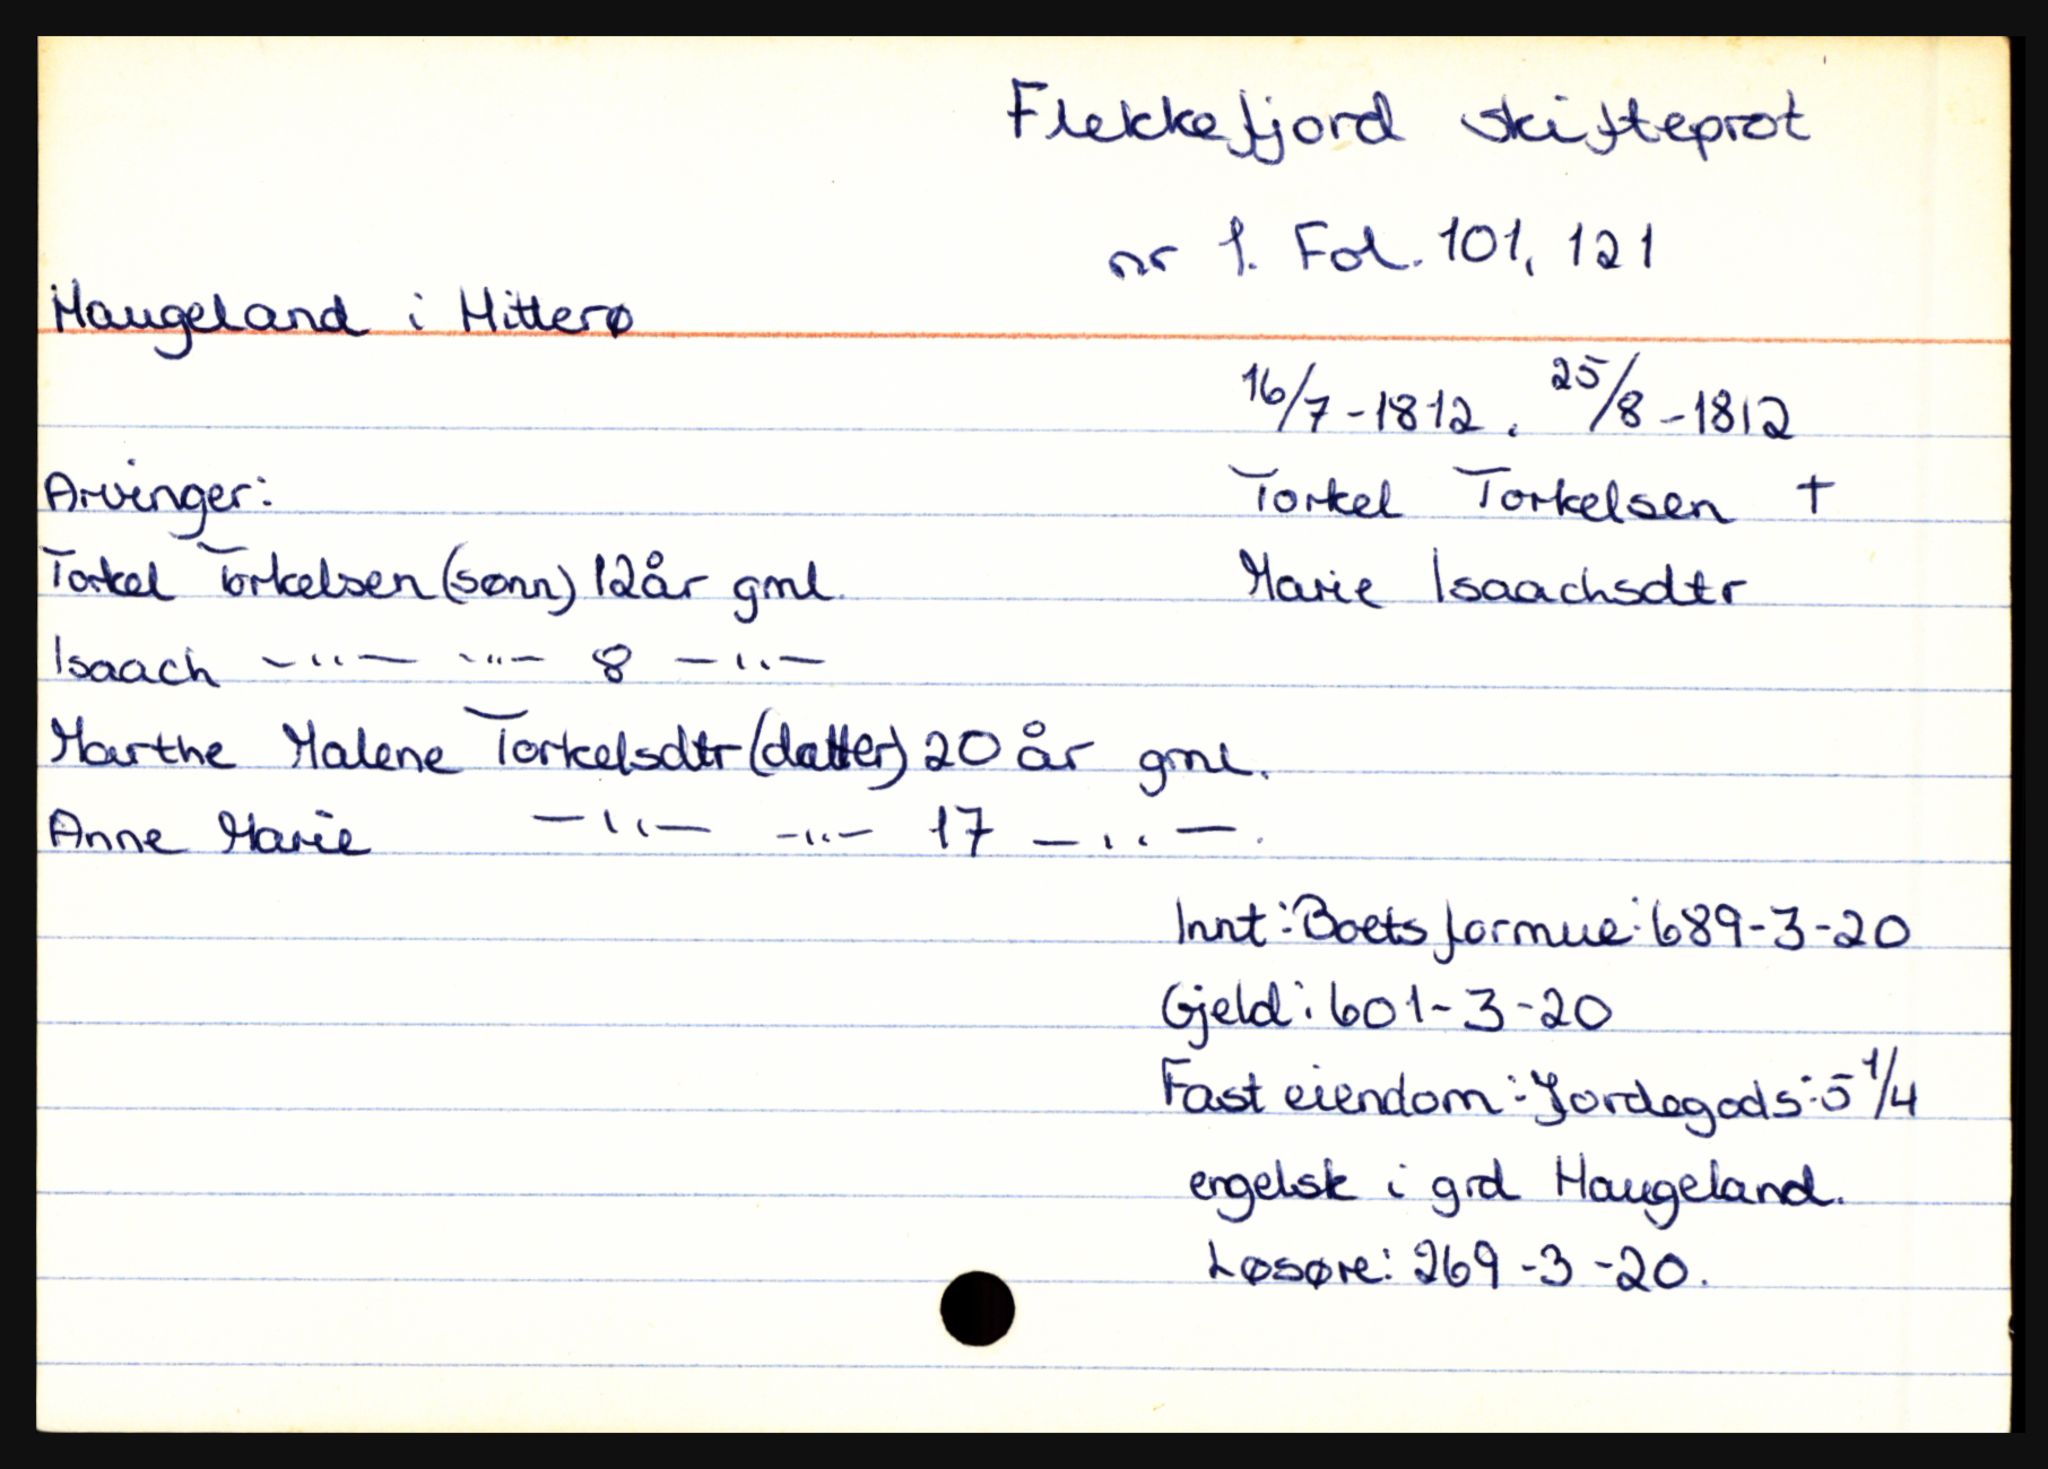 Flekkefjord skifteprot
nr 1. Fol. 101, 121
Haugeland i Hitterø
16/7-1812. 25/8-1812
Arvinger:
Torkel Torkelsen †
Torkel Torkelsen (sønn) 12år gml.
Marie Isaachsdtr
Isaach —"— —"— 8 —"—
Marthe Malene Torkelsdtr (datter) 20 år gml.
Anne Marie —"— —"— 17 —"—.
Innt: Boets formue: 689-3-20
Gjeld: 601-3-20
Fast eiendom: Jordegods: 5 1/4
engelsk i grd Haugeland.
Løsøre: 269-3-20.